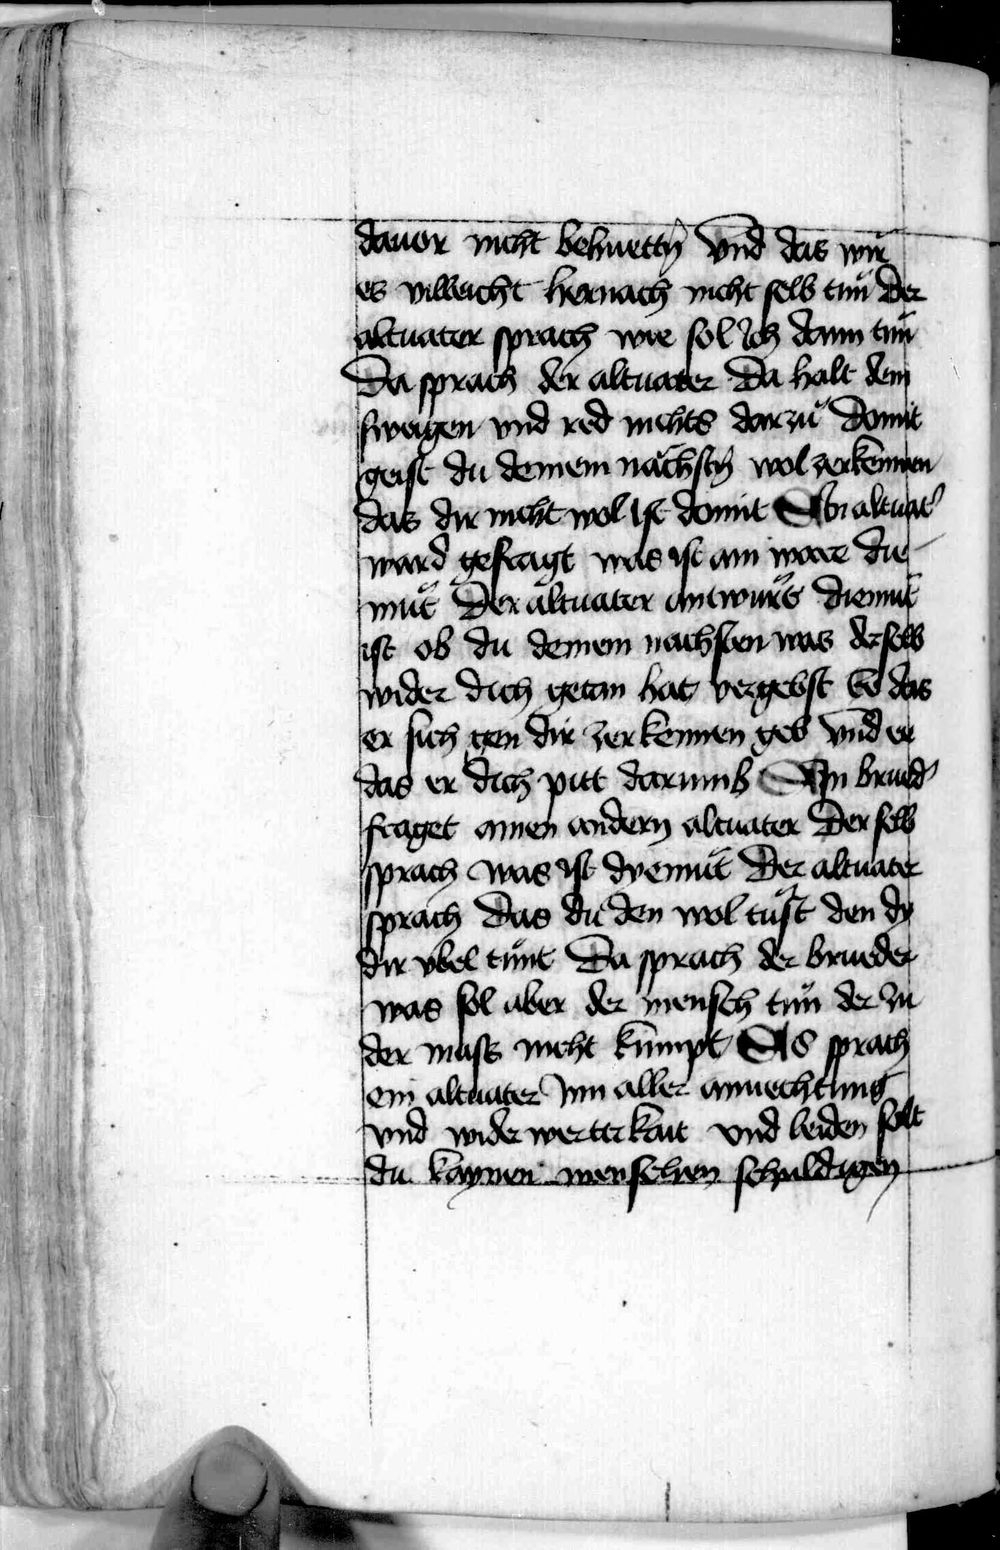 dauor nicht behuettn̄ Vnd das wir
es villeicht hernach nicht selb tuͦn Der
altuater sprach wie sol Ich dann tuͦn
Da sprach der altuater Da halt dem
sweigen vnd red nichts darzuͦ Domit
geist du deinem nächstn̄ wol zerkennen
das dir nicht wol ist domit Ain altuat͛
ward gefragt was ist ain ware die
muͦt Der altuater antwurt diemuͦt
ist ob du deinem nachsten was derselb
wider dich getan hat vergebst Ee das
er sich gen dir zerkennen geb Vnd er
das er dich pitt darumb Ain brued͛
fraget ainen andern altuater Der selb
sprach was ist dyemuͦt Der altuater
sprach Das du den wol tuͦst den dy
dir vbel tuͦnt Da sprach der brueder
was sol aber der mensch tuͦn der zu
der mass nicht kumpt Es sprach
ein altuater Inn aller anuechtung
vnd widerwerttikait vnd leiden solt
du kaynen menschen schuldigen